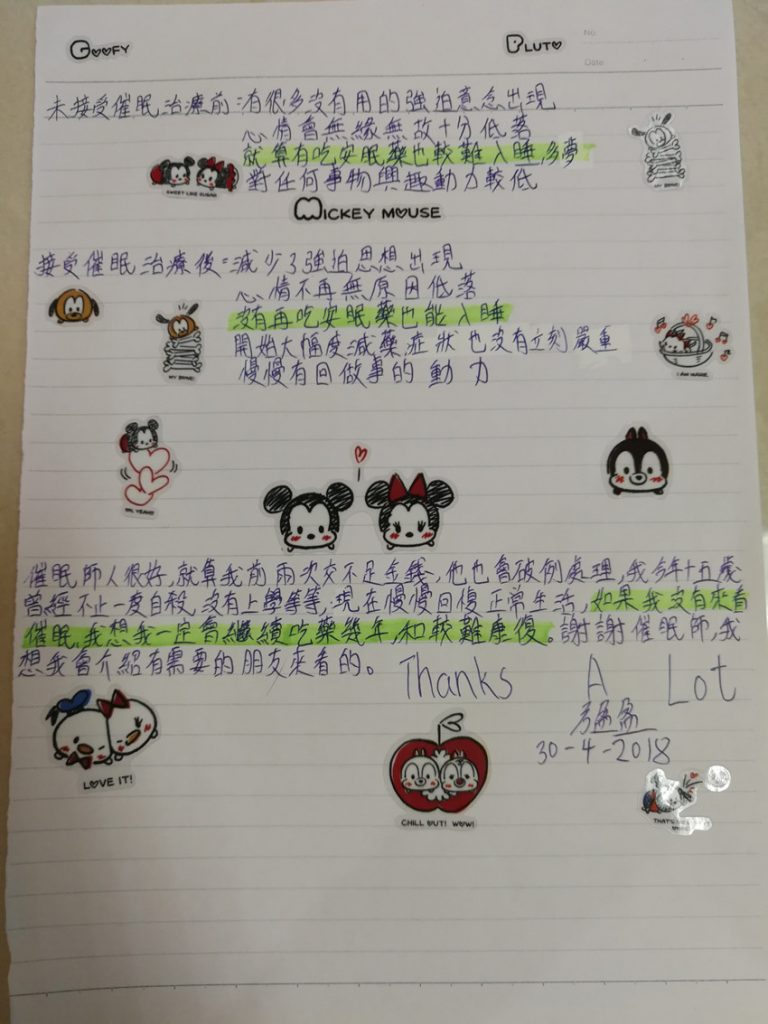 GOOFY
PLUTO
No.
Date
未接受催眠治療前:有很多沒有用的強迫意念出現
心情會無緣無故十分低落
就算有吃安眠藥也較難入睡,多夢
對任何事物興趣動力較低
SWEET LIKE SUGAR
MY BONE!
MICKEY MOUSE
接受催眠治療後=減少了強迫思想出現
心情不再無原因低落
沒有再吃安眠藥也能入睡
開始大幅度減藥,症狀也沒有立刻嚴重
慢慢有回做事的動力
MY BONE!
I AM MARIE.
OH, YEAH!!
催眠師人很好,就算我前兩次交不足金錢,他也會破例處理,我今年十五歲
曾經不止一度自殺,沒有上學等等,現在慢慢回復正常生活,如果我沒有來看
催眠,我想我一定會繼續吃藥幾年,和較難康復。謝謝催眠師,我
想我會介紹有需要的朋友來看的。
Thanks A Lot
30-4-2018
LOVE IT!
CHILL OUT! WOW!
THAT'S